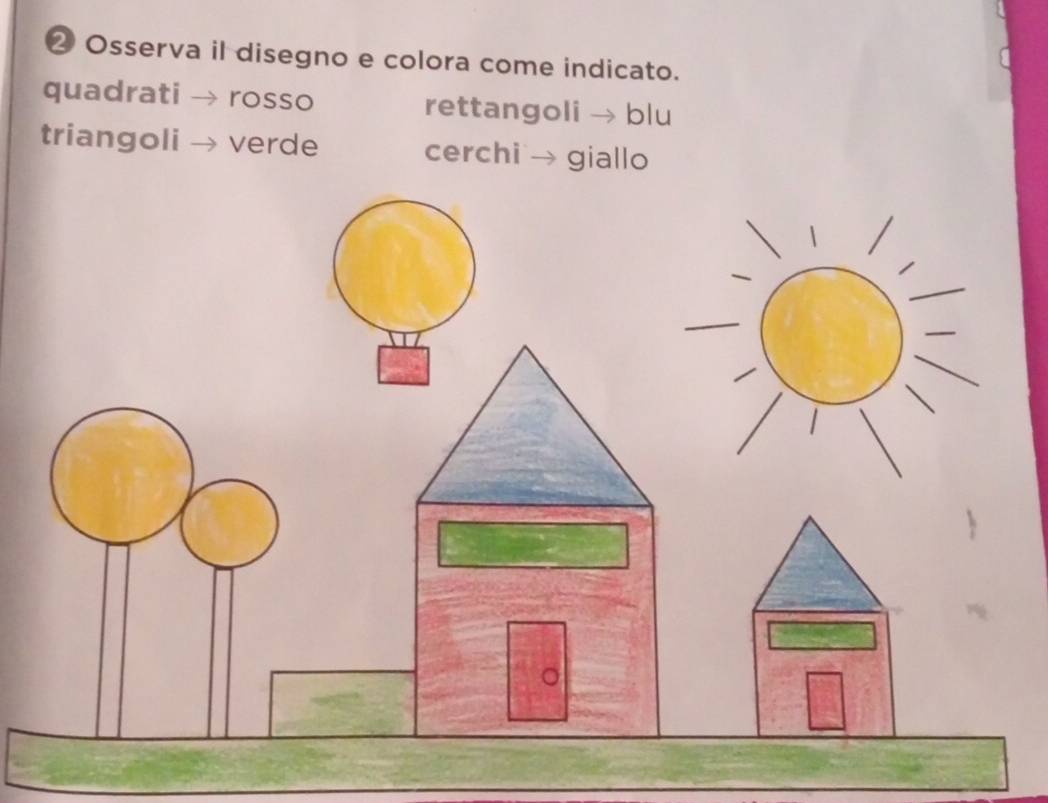 2 Osserva il disegno e colora come indicato.
quadrati → rosso rettangoli → blu
triangoli → verde cerchi → giallo